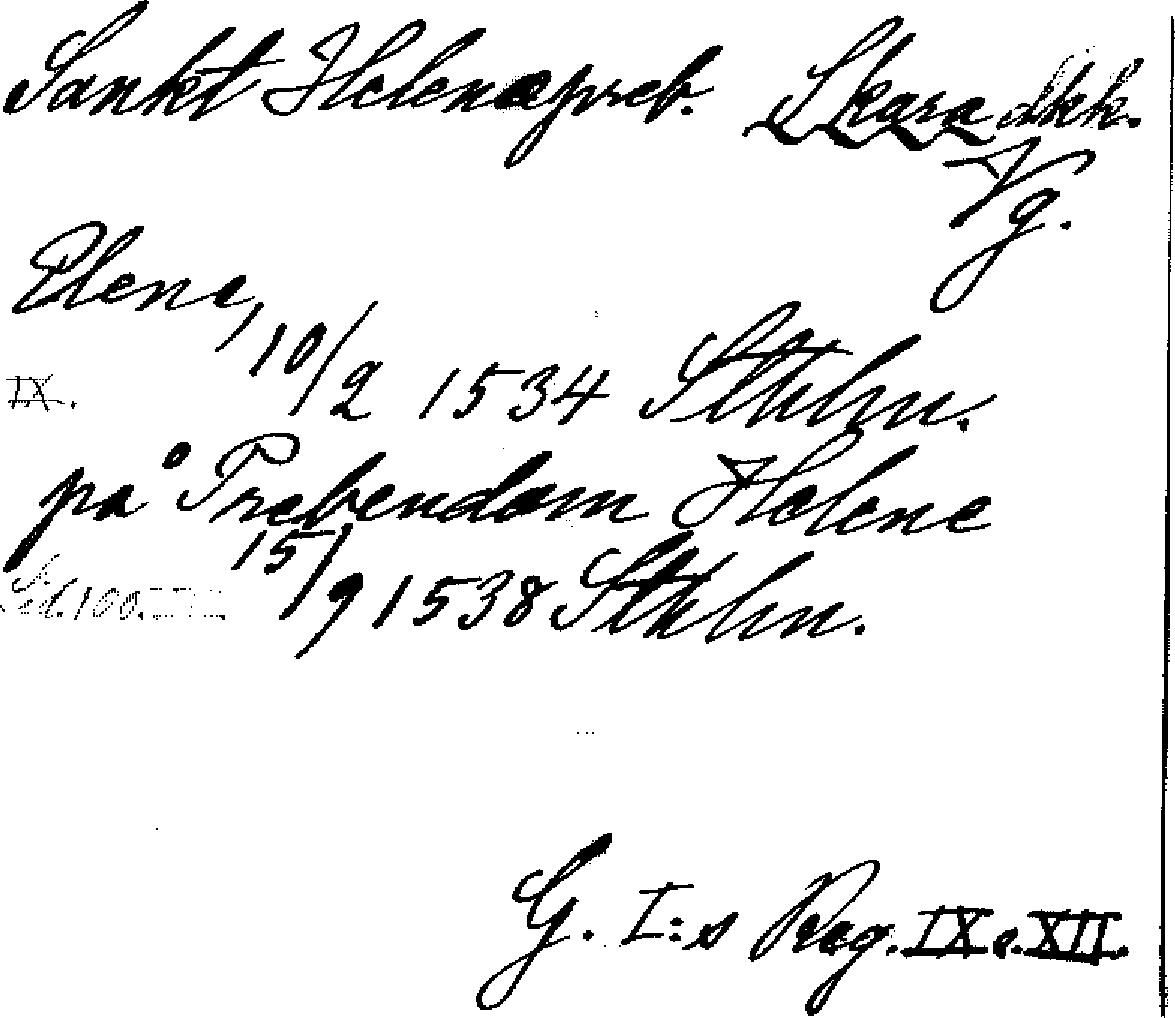 Sankt Helenapreb. Skara dkk.
Vg.
Elene,
10/2 1534 Sthlm.
IX.
på Prebendam Helene
15/9 1538 Sthlm.
G. I:s Reg. IX o. XII.